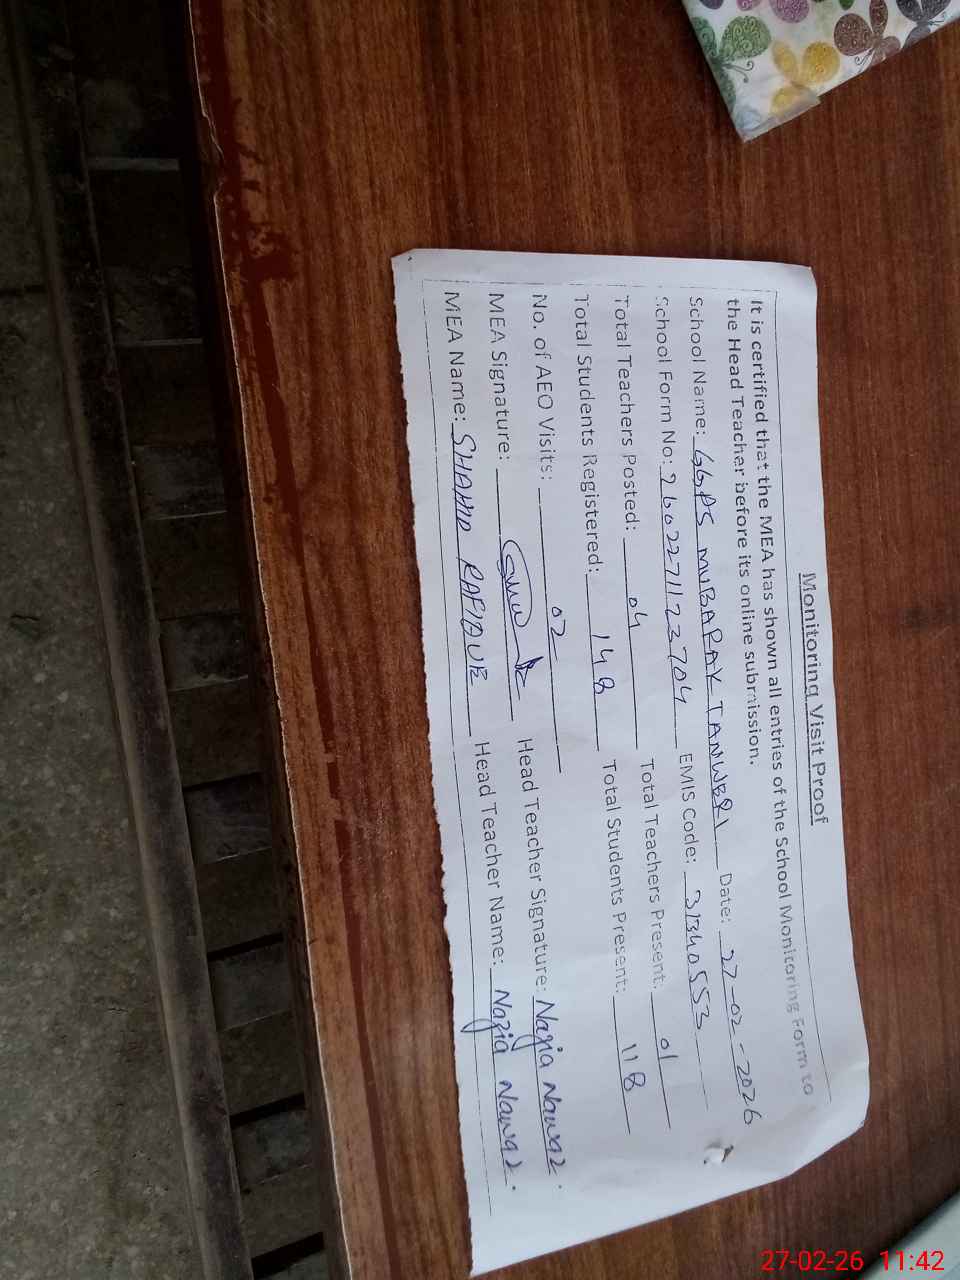 Monitoring Visit Proof
It is certified that the MEA has shown all entries of the School Monitoring Form to
the Head Teacher before its online submission.
School Name: GGPS MUBARAK TANWERI Date: 27-02-2026
School Form No: 2602271123704 EMIS Code: 31340553
Total Teachers Posted: 04 Total Teachers Present: 01
Total Students Registered: 148 Total Students Present: 118
No. of AEO Visits: 02
MEA Signature: Head Teacher Signature: Nazia Nawaz.
MEA Name: SHAHID RAFIQUE Head Teacher Name: Nazia Nawaz.
27-02-26 11:42